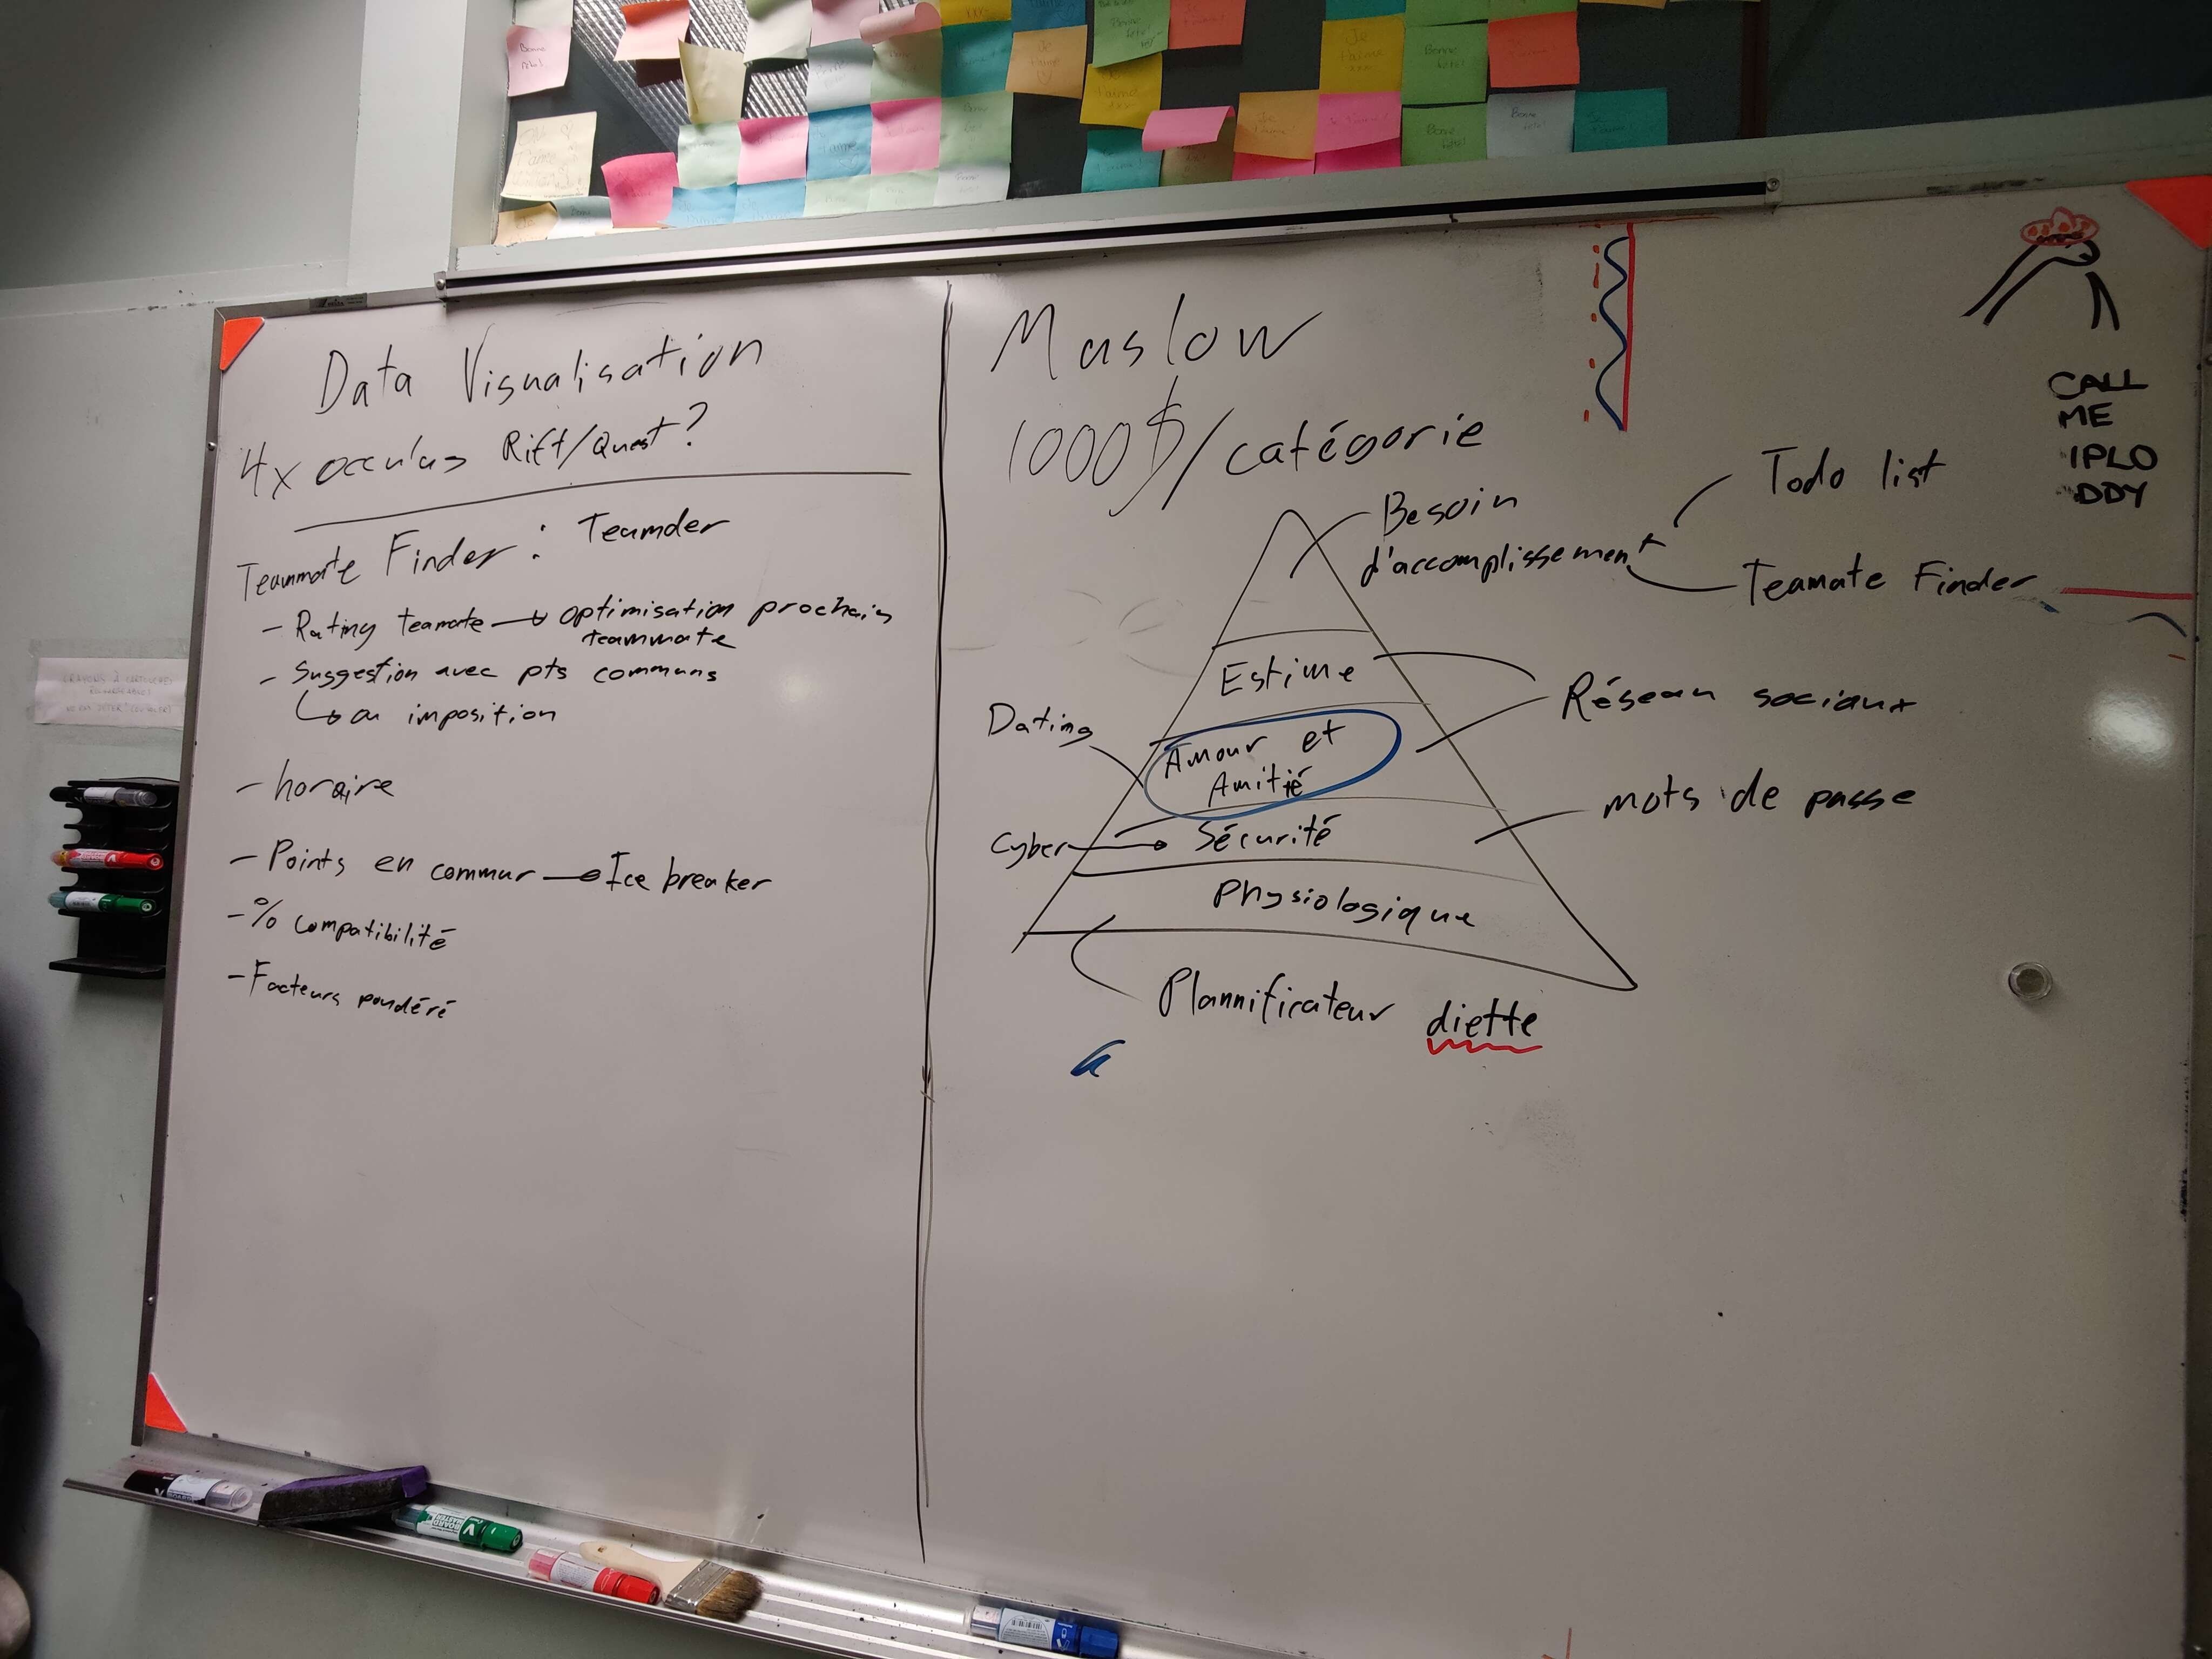 Data Visualisation
4x occulus Rift/Quest?
Teammate Finder : Teamder
- Rating teamate → optimisation prochain
teammate
- Suggestion avec pts communs
↳ ou imposition
- horaire
- Points en commun → Ice breaker
- % compatibilité
- Facteurs pondéré
Maslow
1000$/catégorie
Besoin
d'accomplissement
Todo list
Teamate Finder
Estime
Réseau sociaux
Dating
Amour et
Amitié
mots de passe
Cyber → Sécurité
Physiologique
Plannificateur diette
CALL
ME
IPLO
DDY